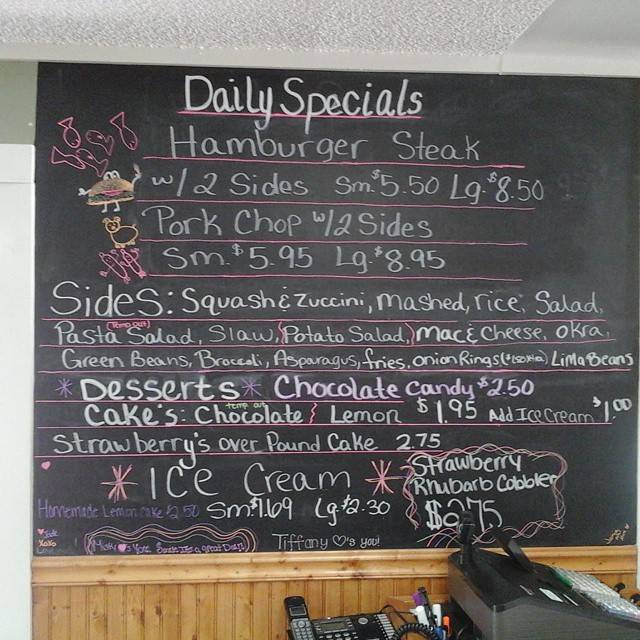 Daily Specials
Hamburger Steak
w/ 2 Sides Sm. $5.50 Lg. $8.50
Pork Chop w/2 Sides
Sm. $5.95 Lg. $8.95
Sides: Squash & Zuccini, mashed, rice, Salad,
Temp out
Pasta Salad, Slaw, Potato Salad, Mac & Cheese, Okra,
Green Beans, Broccoli, Asparagus, fries, onion Rings Lima Beans
Desserts Chocolate Candy $2.50
temp. out
Cake's: Chocolate Lemon $1.95 Add Ice Cream $1.00
Strawberry's over Pound Cake 2.75
Ice Cream
Strawberry
Rhubarb Cobbler
$2.75
Homemade Lemon Cake $2.50 Sm $1.69 Lg $2.30
XOXO
Tiffany ♡'s you!